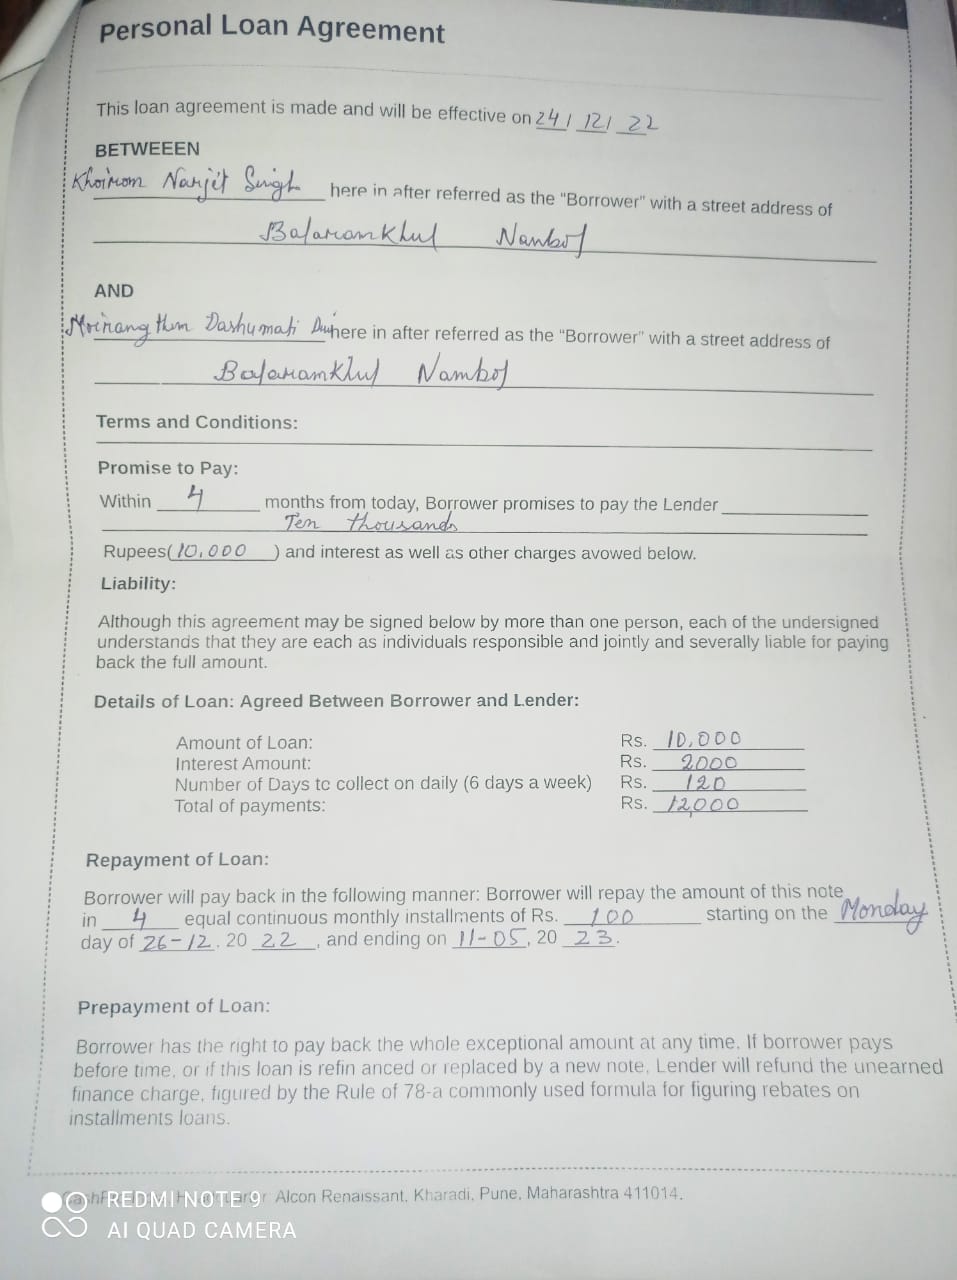 Personal Loan Agreement
This loan agreement is made and will be effective on 24 / 12 / 22
BETWEEEN
Khoirom Narjit Singh here in after referred as the "Borrower" with a street address of
Balaramkhul Nambol
AND
Moirangthem Dashumati Devi here in after referred as the "Borrower" with a street address of
Balaramkhul Nambol
Terms and Conditions:
Promise to Pay:
Within 4 months from today, Borrower promises to pay the Lender
Ten thousands
Rupees( 10,000 ) and interest as well as other charges avowed below.
Liability:
Although this agreement may be signed below by more than one person, each of the undersigned
understands that they are each as individuals responsible and jointly and severally liable for paying
back the full amount.
Details of Loan: Agreed Between Borrower and Lender:
Amount of Loan: Rs. 10,000
Interest Amount: Rs. 2000
Number of Days to collect on daily (6 days a week) Rs. 120
Total of payments: Rs. 12,000
Repayment of Loan:
Borrower will pay back in the following manner: Borrower will repay the amount of this note
in 4 equal continuous monthly installments of Rs. 100 starting on the Monday
day of 26-12, 20 22, and ending on 11-05, 20 23.
Prepayment of Loan:
Borrower has the right to pay back the whole exceptional amount at any time. If borrower pays
before time, or if this loan is refin anced or replaced by a new note, Lender will refund the unearned
finance charge, figured by the Rule of 78-a commonly used formula for figuring rebates on
installments loans.
Alcon Renaissant, Kharadi, Pune, Maharashtra 411014.
REDMI NOTE 9
AI QUAD CAMERA